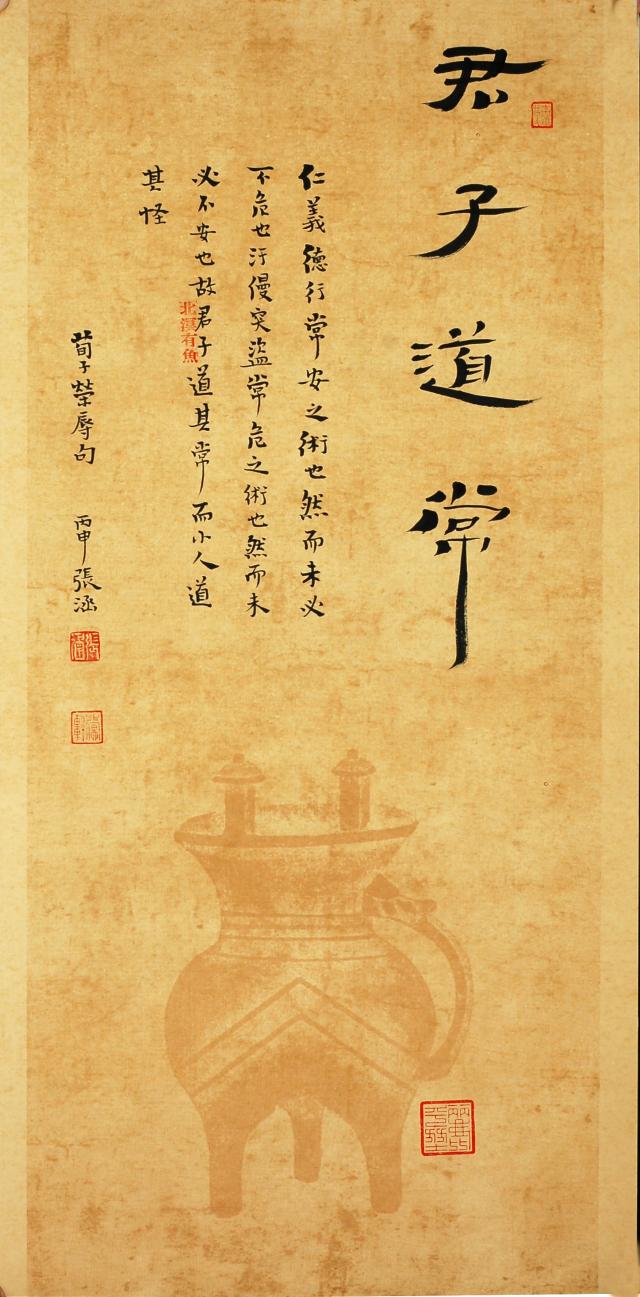 君子道常
仁義德行常安之術也然而未必
不危也汙僈突盜常危之術也然而未
必不安也故君子道其常而小人道
其怪
荀子榮辱句 丙申 張涵
北溟有魚